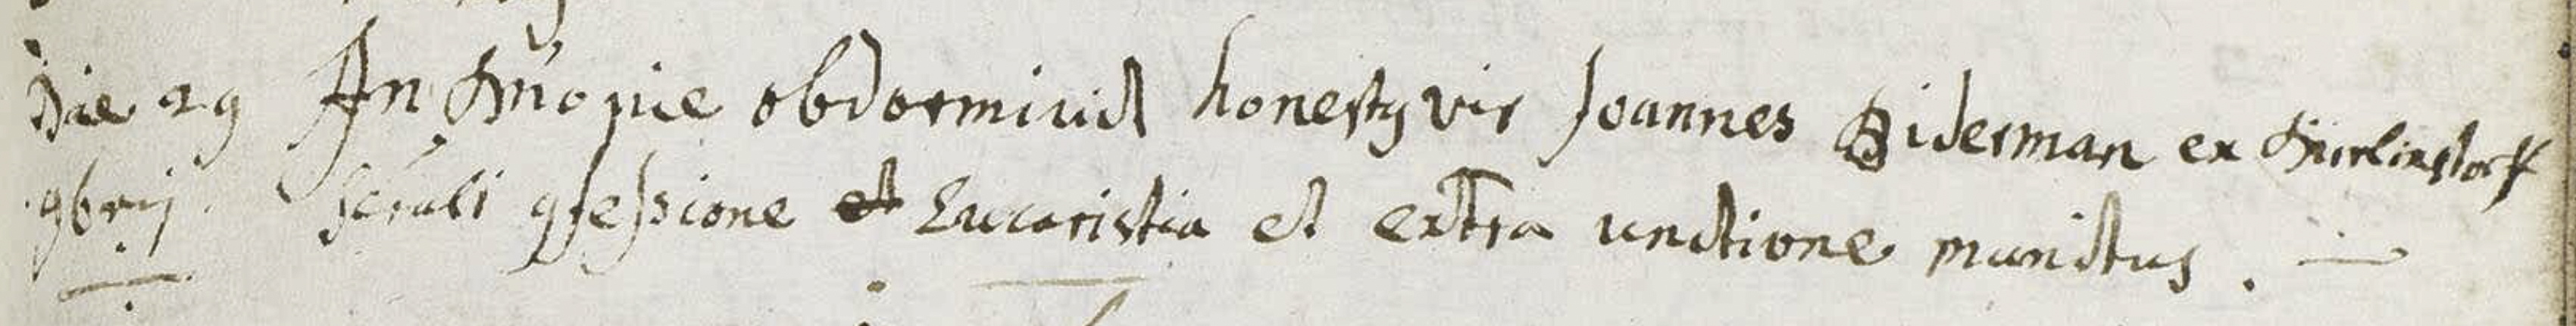 Die 29 In Dn̄o pie obdormivit honestq vir Joannes Biderman ex Dürlinstorff
9brij. scrali qfessione et Eucaristia et extra unctione munitus. —